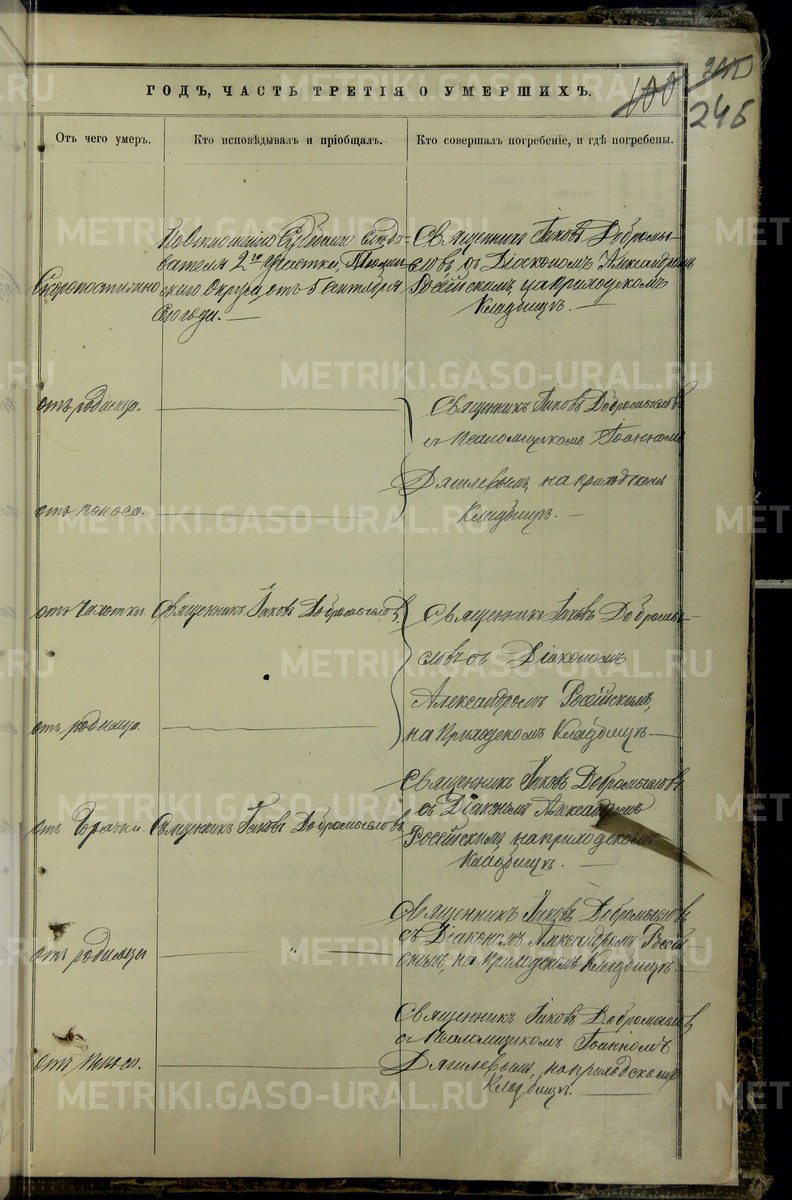 ГОДЪ, ЧАСТЬ ТРЕТІЯ О УМЕРШИХЪ.
100
246
Отъ чего умеръ.
Кто исповѣдывалъ и пріобщалъ.
Кто совершалъ погребеніе, и гдѣ погребены.
Скоропостижно
Судебнаго Слѣдо-
вателя 2го участка, Тюмен-
скаго Округа, отъ 5 Сентября
сего года. —
Священникъ Іаковъ Добромы-
словъ съ Діакономъ Александромъ
Россійскимъ, на приходскомъ
Кладбищѣ. —
отъ родимца.
Священникъ Іаковъ Добромысловъ
съ Псаломщикомъ Іоанномъ
на приходскомъ
Кладбищѣ. —
отъ поноса.
отъ чахотки
Священникъ Іаковъ Добромысловъ
Священникъ Іаковъ Добромы-
словъ съ Діакономъ
Александромъ Россійскимъ,
на приходскомъ Кладбищѣ —
отъ родимца.
отъ горячки.
Священникъ Іаковъ Добромысловъ
Священникъ Іаковъ Добромысловъ
съ Діакономъ Александромъ
Россійскимъ, на приходскомъ
Кладбищѣ. —
отъ родимца
"
Священникъ Іаковъ Добромысловъ
съ Діакономъ Александромъ Россій-
скимъ, на приходскомъ Кладбищѣ. —
отъ поноса.
Священникъ Іаковъ Добромысловъ
съ Псаломщикомъ Іоанномъ
на приходскомъ
Кладбищѣ. —
METRIKI.GASO-URAL.RU